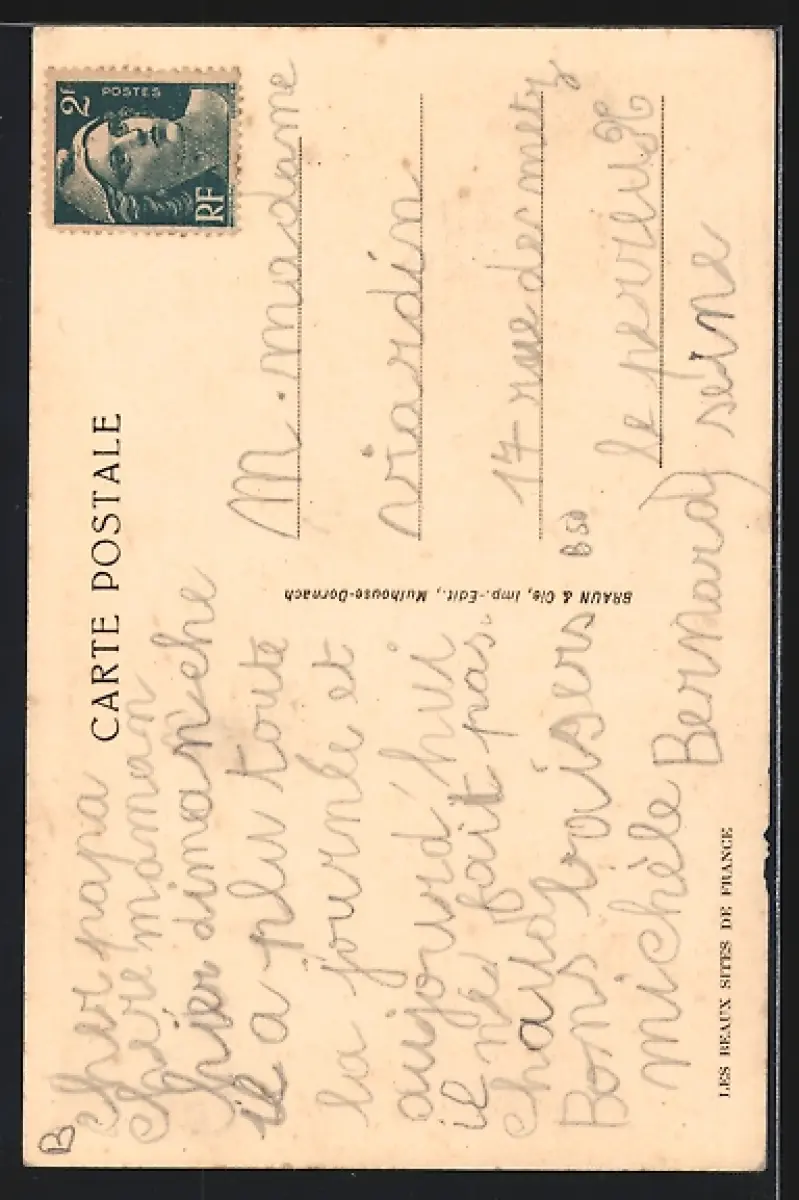 B
CARTE POSTALE
cher papa
chère maman
hier dimanche
il a plu toute
la journée et
aujourd'hui
il ne fait pas
chaud
Bons baisers
michèle Bernard
LES BEAUX SITES DE FRANCE
BRAUN & Cie, Imp.-Edit., Mulhouse-Dornach
B50
2F
POSTES
RF
M. madame
viardin
17 rue de metz
le perreux
seine